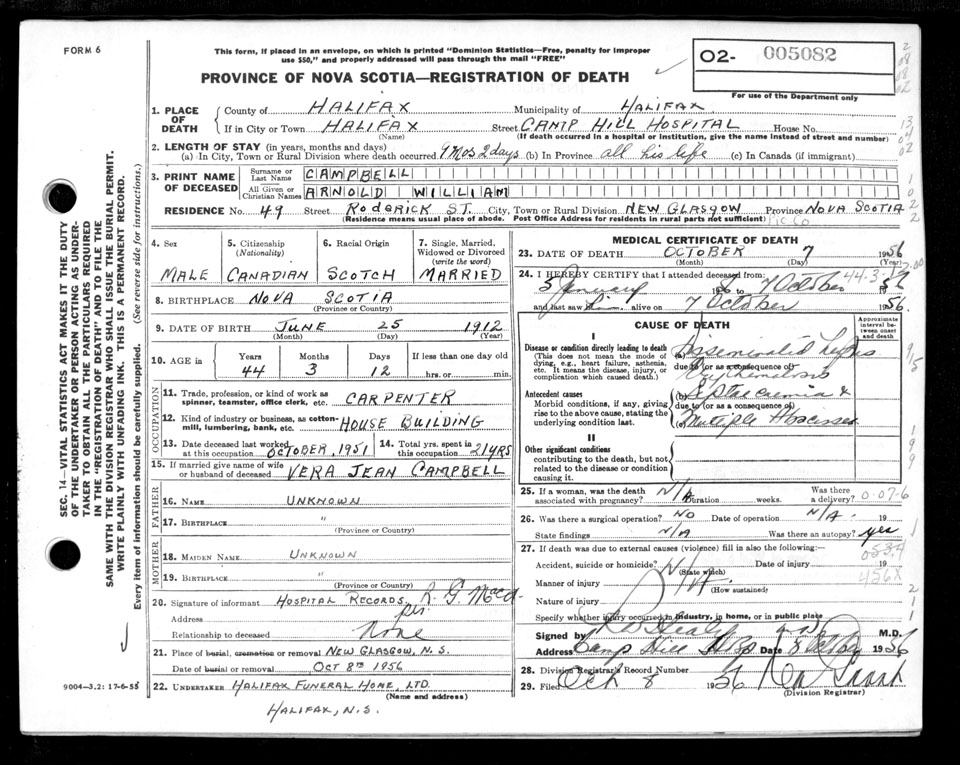 FORM 6
This form, if placed in an envelope, on which is printed "Dominion Statistics—Free, penalty for improper
use $50," and properly addressed will pass through the mail "FREE"
PROVINCE OF NOVA SCOTIA—REGISTRATION OF DEATH
02- 005082
For use of the Department only
1. PLACE OF DEATH
County of HALIFAX Municipality of HALIFAX
If in City or Town HALIFAX Street CAMP HILL HOSPITAL House No.
(Name) (If death occurred in a hospital or institution, give the name instead of street and number)
2. LENGTH OF STAY (in years, months and days)
(a) In City, Town or Rural Division where death occurred 9 Mos 2 days (b) In Province all his life (c) In Canada (if immigrant)
3. PRINT NAME OF DECEASED
Surname or Last Name CAMPBELL
All Given or Christian Names ARNOLD WILLIAM
RESIDENCE No. 49 Street RODERICK ST. City, Town or Rural Division NEW GLASGOW Province NOVA SCOTIA
(Residence means usual place of abode. Post Office Address for residents in rural parts not sufficient) Pic. Co
4. Sex
MALE
5. Citizenship (Nationality)
CANADIAN
6. Racial Origin
SCOTCH
7. Single, Married, Widowed or Divorced (write the word)
MARRIED
8. BIRTHPLACE NOVA SCOTIA
(Province or Country)
9. DATE OF BIRTH JUNE 25 1912
(Month) (Day) (Year)
10. AGE IN
Years Months Days If less than one day old
44 3 12 hrs. or min.
OCCUPATION
11. Trade, profession, or kind of work as spinner, teamster, office clerk, etc. CARPENTER
12. Kind of industry or business, as cotton-mill, lumbering, bank, etc. HOUSE BUILDING
13. Date deceased last worked at this occupation OCTOBER, 1951
14. Total yrs. spent in this occupation 21 YRS
15. If married give name of wife or husband of deceased VERA JEAN CAMPBELL
FATHER
16. NAME UNKNOWN
17. BIRTHPLACE "
(Province or Country)
MOTHER
18. MAIDEN NAME UNKNOWN
19. BIRTHPLACE "
(Province or Country)
20. Signature of informant HOSPITAL RECORDS
per
Address
Relationship to deceased None
21. Place of burial, cremation or removal NEW GLASGOW, N.S.
Date of burial or removal OCT 8TH 1956
22. UNDERTAKER HALIFAX FUNERAL HOME, LTD.
(Name and address)
HALIFAX, N.S.
9004—3.2: 17-6-55
MEDICAL CERTIFICATE OF DEATH
23. DATE OF DEATH OCTOBER 7 1956
(Month) (Day) (Year)
24. I HEREBY CERTIFY that I attended deceased from:
5 January 1956 to 7 October 1956
and last saw him alive on 7 October 1956
44-3
CAUSE OF DEATH
Approximate interval between onset and death
I
Disease or condition directly leading to death
(This does not mean the mode of dying, e.g., heart failure, asthenia, etc. It means the disease, injury, or complication which caused death.)
(a) Disseminated Lupus
due to (or as a consequence of)
Erythematosis
Antecedent causes
Morbid conditions, if any, giving rise to the above cause, stating the underlying condition last.
(b) Septicaemia &
due to (or as a consequence of)
(c) Multiple Abscesses
II
Other significant conditions
contributing to the death, but not related to the disease or condition causing it.
25. If a woman, was the death associated with pregnancy? N/A Duration weeks. Was there a delivery?
0-07-6
26. Was there a surgical operation? NO Date of operation N/A. 19
State findings N/A Was there an autopsy? yes
27. If death was due to external causes (violence) fill in also the following:—
Accident, suicide or homicide? N/A Date of injury 19
(State which)
0534
456X
Manner of injury
(How sustained)
Nature of injury
Specify whether injury occurred in industry, in home, or in public place
Signed by M.D.
Address Camp Hill Hosp Date 8 October 1956
28. Division Registrar's Record Number
29. Filed Oct 8 1956
(Division Registrar)
SEC. 14—VITAL STATISTICS ACT MAKES IT THE DUTY
OF THE UNDERTAKER OR PERSON ACTING AS UNDER-
TAKER TO OBTAIN ALL THE PARTICULARS REQUIRED
IN THE "REGISTRATION OF DEATH" AND TO FILE THE
SAME WITH THE DIVISION REGISTRAR WHO SHALL ISSUE THE BURIAL PERMIT.
WRITE PLAINLY WITH UNFADING INK. THIS IS A PERMANENT RECORD.
Every item of information should be carefully supplied. (See reverse side for instructions.)